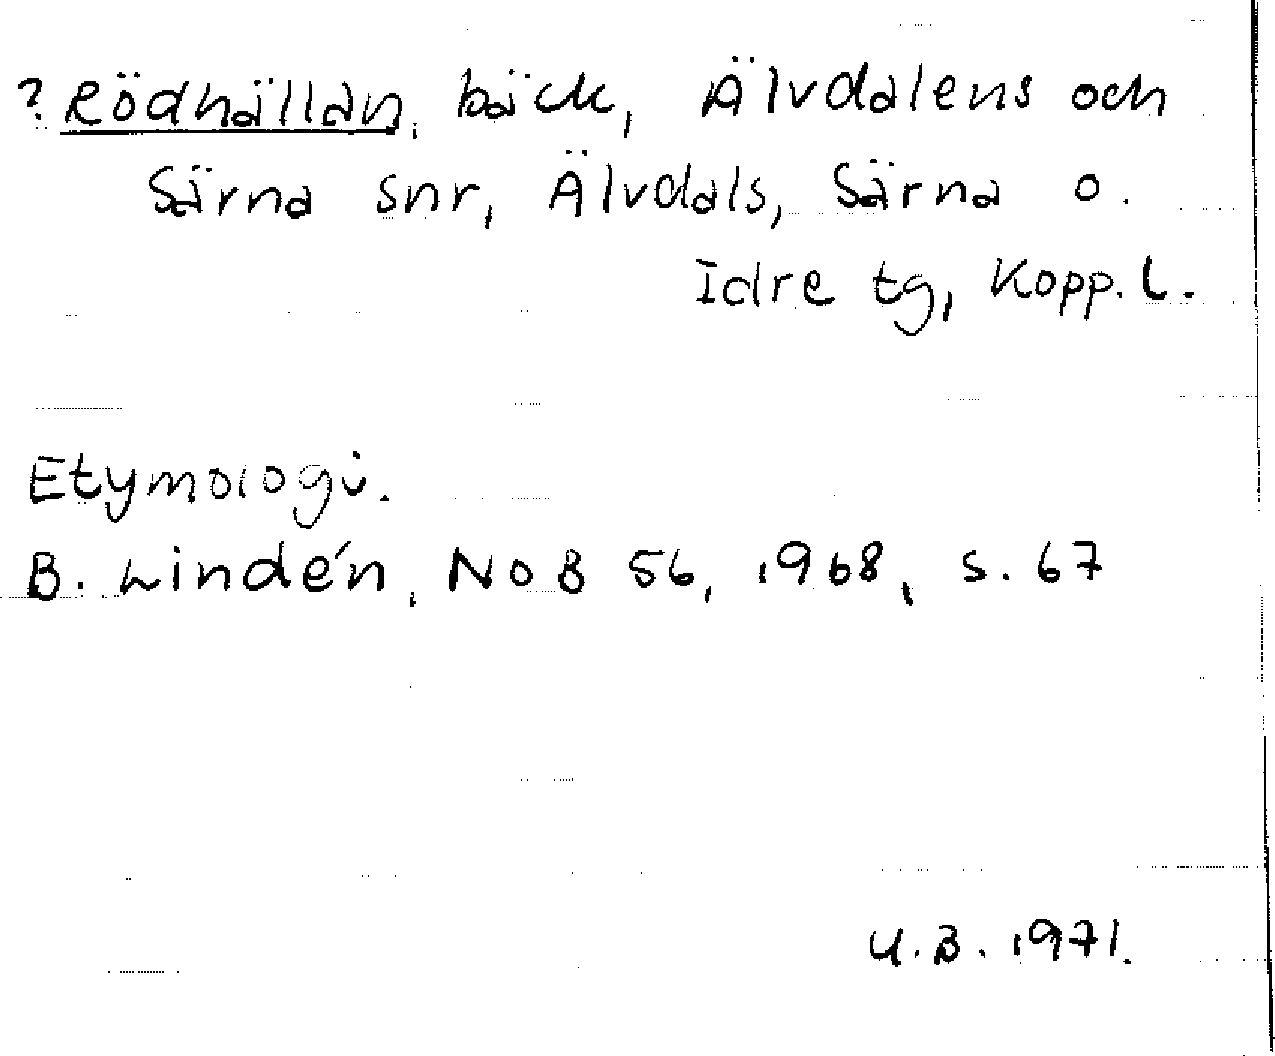 ? Rödhällan, bäck, Älvdalens och
Särna snr, Älvdals, Särna o.
Idre tg, Kopp. l.
Etymologi.
B. Lindén, NoB 56, 1968, s. 67
U.B. 1971.